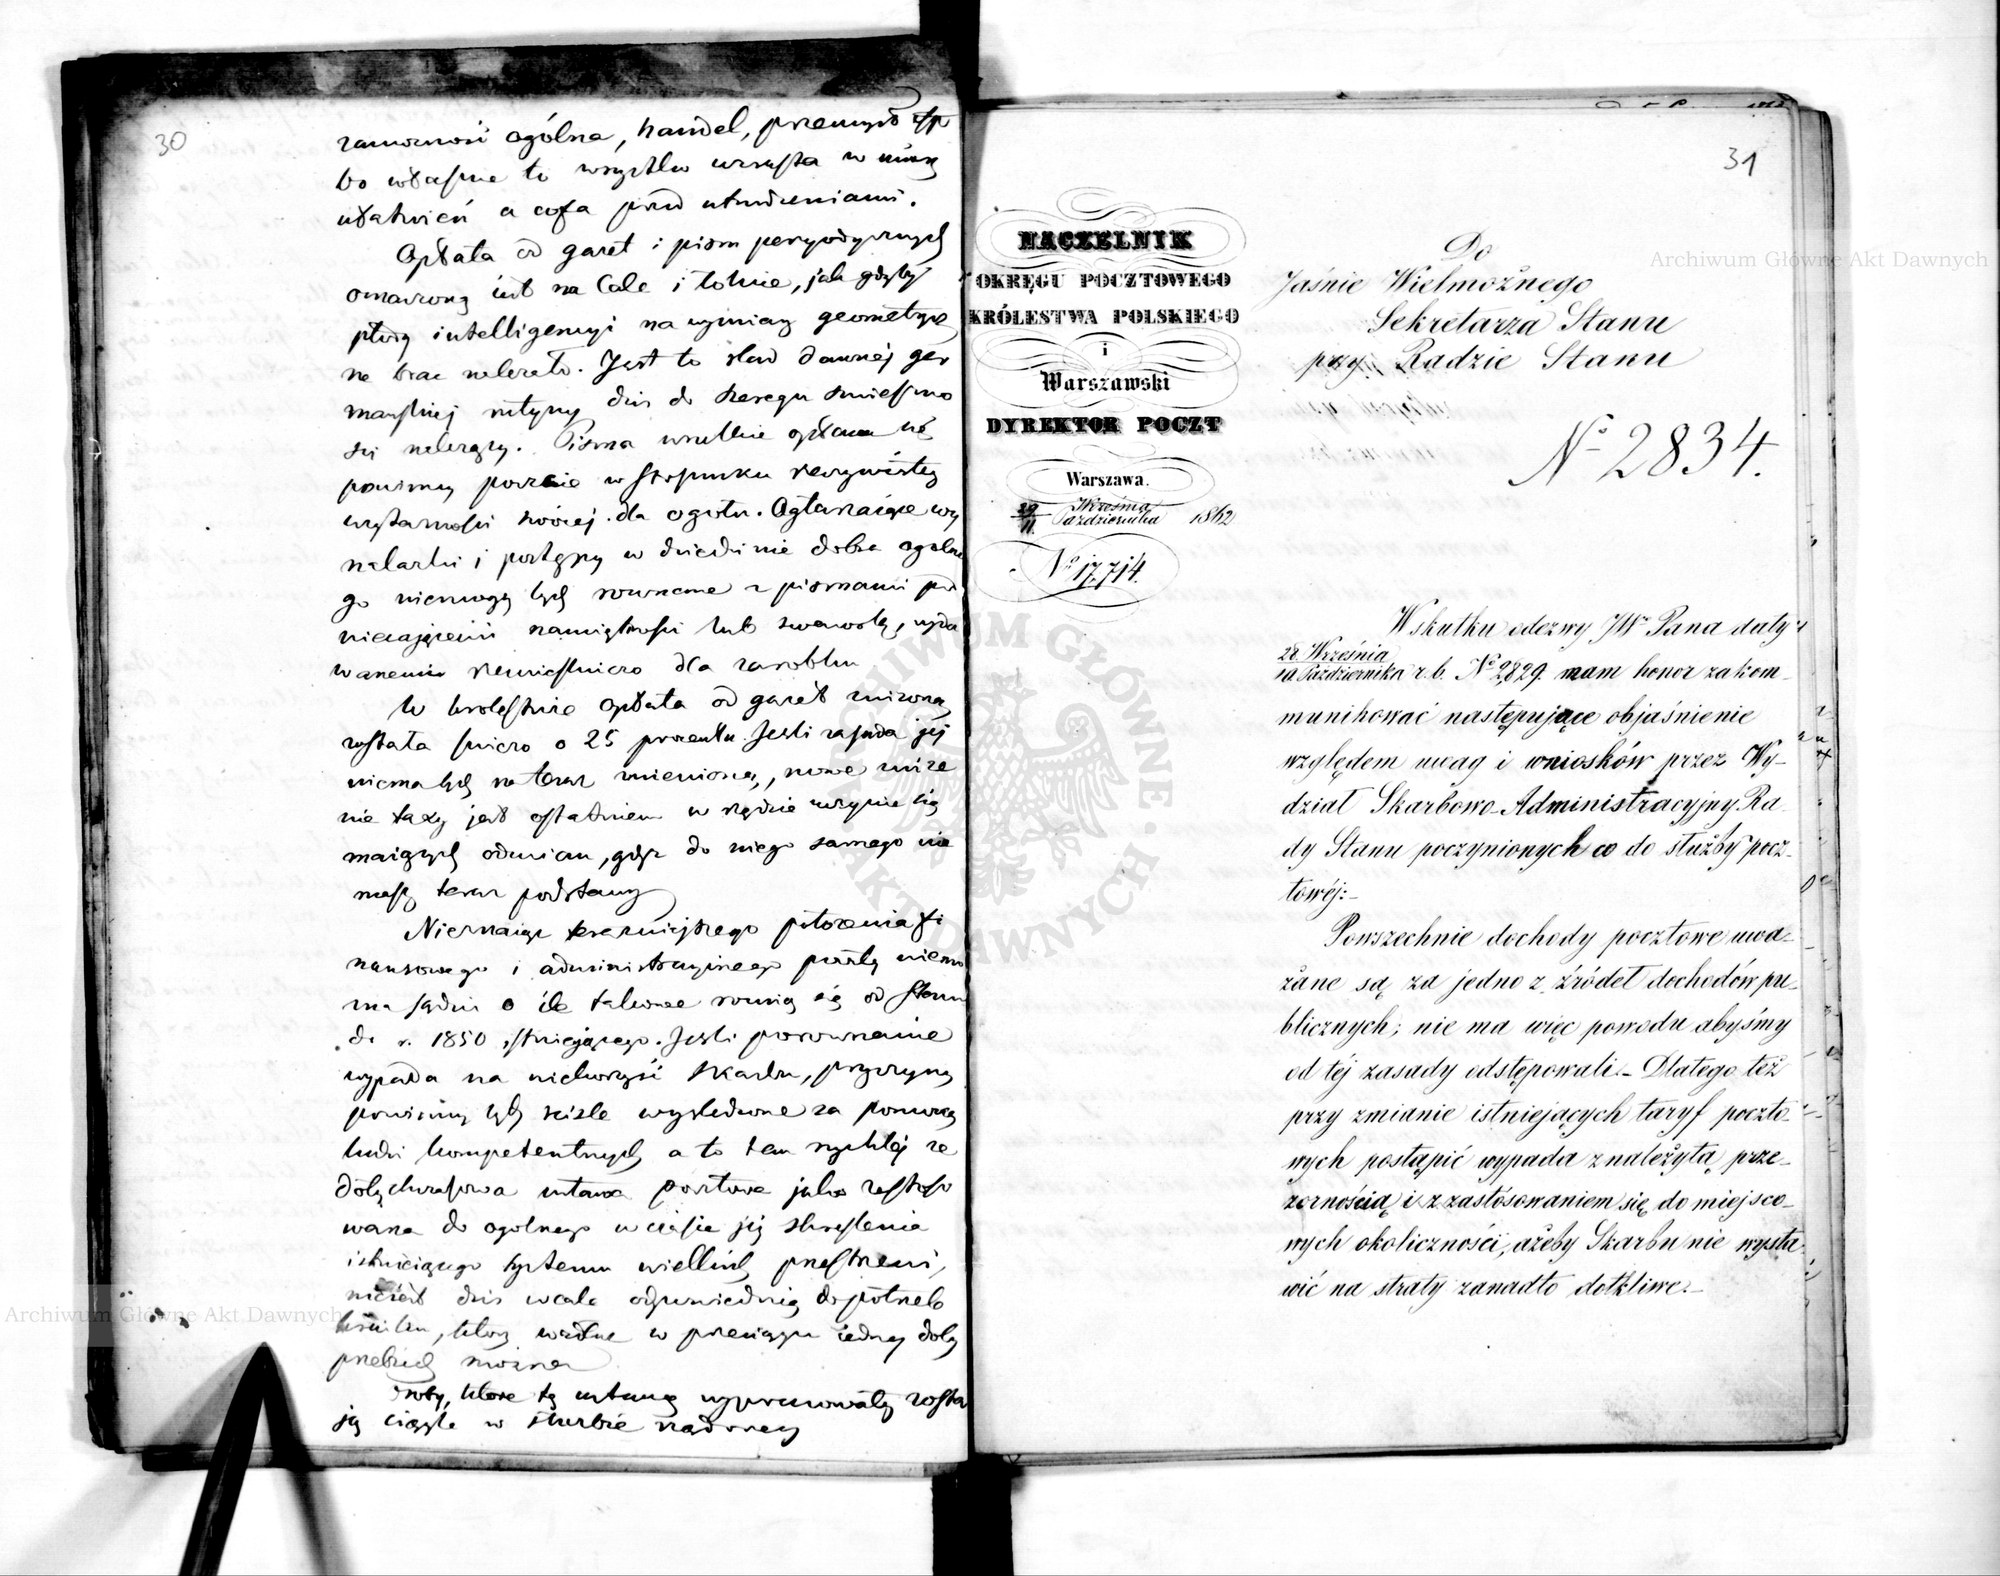 30
zamożność ogólna, handel, przemysł itp
bo właśnie to wszystko wzrasta w miarę
ułatwień a cofa przed utrudzeniami.
Opłata od gazet i pism peryodycznych
oznaczoną jest na Cale i łokcie, jak gdyby
płody intelligencyi na wymiary geometrycz
ne brac należało. Jest to ślad dawnéj ger
mańskiej rutyny dziś do szeregu śmieszno
ści należący. Pisma wszelkie opłacać się
powinny pocz w stosunku rzeczywistéj
użyteczności swojej dla ogółu. Ogłaszające wy
nalazki i postępy w dziedzinie dobra ogólne
go niemogą być rownane z pismami pod
niecającemi namiętności lub swawolę, wyda
wanemi rzemieślniczo dla zarobku
W Krolestwie opłata od gazet zniżoną
została świeżo o 25 procentu. Jeśli zasada jéj
niema być na teraz zmienioną, nowe zniże
nie taxy jest ostatniem w rzędzie
maiących odmian, gdyż do niego samego nie
masz teraz podstawy
Niemaiąc teraźniejszego położenia fi
nansowego i administracyjnego poczty niemo
żna sądzić o ile takowe rożnią się od stanu
do r. 1850 istniejącego. Jeśli porownanie
wypada na niekorzyść Skarbu, przyczyny
powinny być ściśle wyśledzone za pomocą
ludzi kompetentnych a to tem rychlej że
dotychczasowa ustawa pocztowa jako zastoso
wana do ogolnego w czasie jéj skreślenia
istnieiącego systemu wielkich przestrzeni,
nie jest dziś wcale odpowiednią do potrzeb
kraiku, ktory wzdłuż w przeciągu iednej doby
przebiedz można
Osoby, ktore tę ustawę wypracowały zosta
ją ciągle w służbie rządowey
31
NACZELNIK
OKRĘGU POCZTOWEGO
KRÓLESTWA POLSKIEGO
i
Warszawski
DYREKTOR POCZT
Warszawa.
29 Września
11 Października 1862
Nº 17,714.
Do
Jaśnie Wielmożnego
Sekretarza Stanu
przy Radzie Stanu
Nº 2834.
Wskutku odezwy JWº Pana daty
28 Września
10 Października r. b. Nº 2,829. mam honor zakom-
munikować następujące objaśnienie
względem uwag i wniosków przez Wy-
dział Skarbowo-Administracyjny Ra-
dy Stanu poczynionych co do służby pocz-
towéj:-
Powszechnie dochody pocztowe uwa-
żane są za jedno z źródeł dochodów pu-
blicznych; nie ma więc powodu abyśmy
od téj zasady odstępowali.- Dlatego też
przy zmianie istniejących taryf poczto-
wych postąpić wypada z należytą prze-
zornością i z zastósowaniem się do miejsco-
wych okoliczności, ażeby Skarbu nie wysta-
wić na straty zanadto dotkliwe.-
Archiwum Główne Akt Dawnych
Archiwum Główne Akt Dawnych
ARCHIWUM GŁÓWNE AKT DAWNYCH